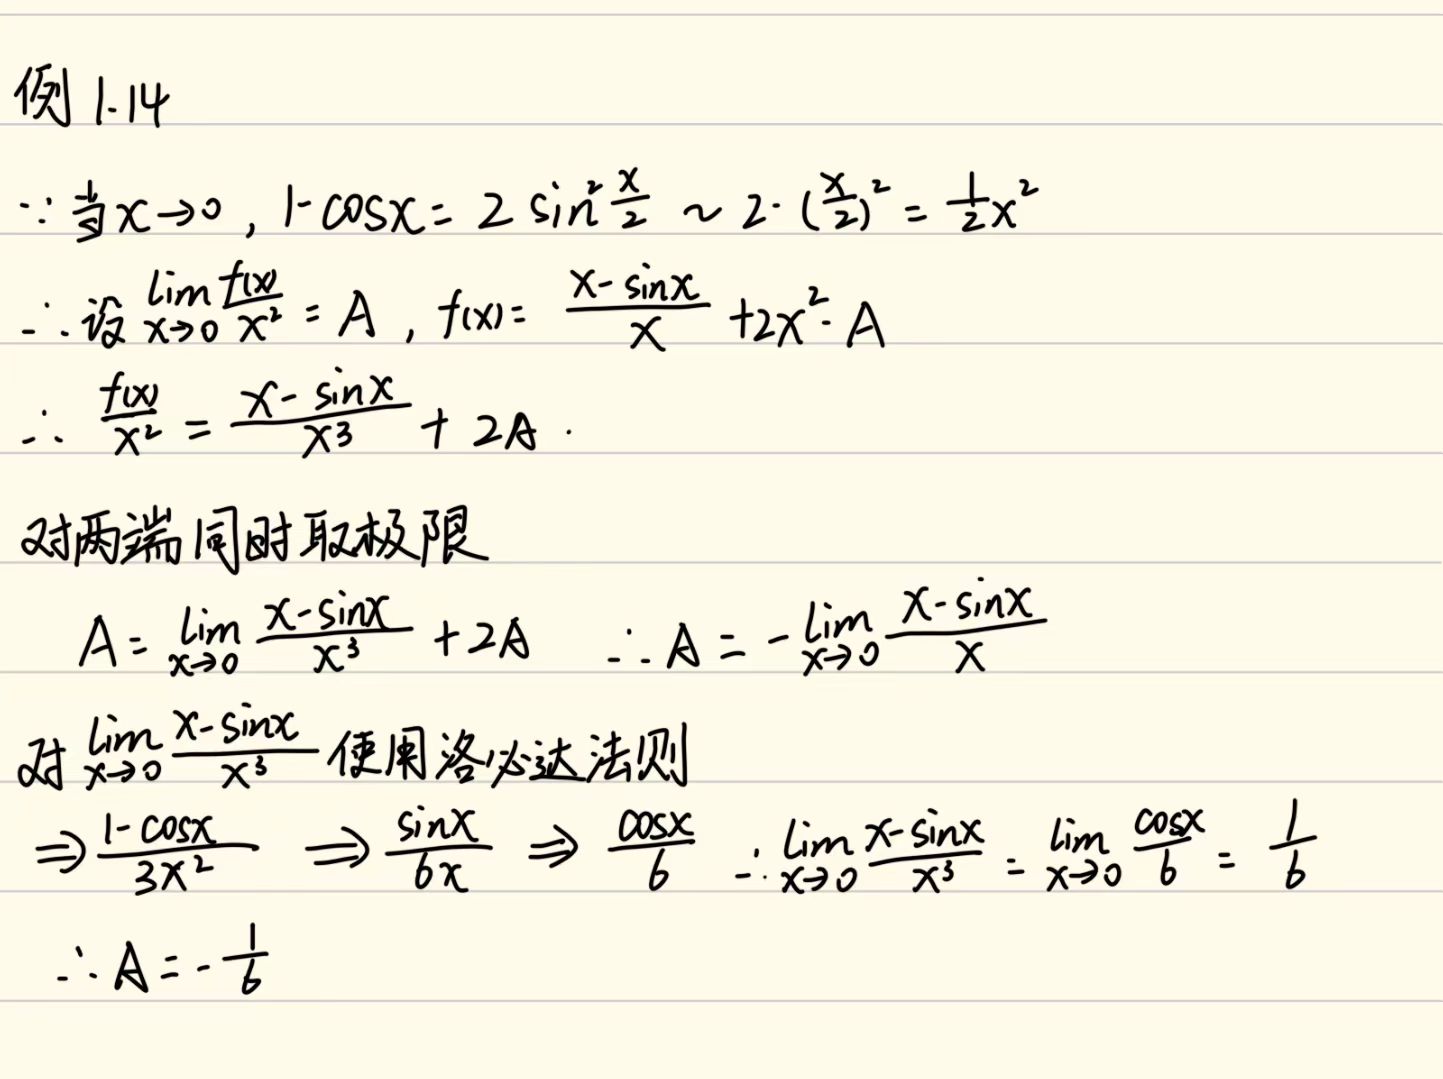 例 1.14
∵ 当x→0 , 1-cosx = 2 sin²x/2 ~ 2·(x/2)² = 1/2x²
∴ 设 lim x→0 f(x)/x² = A , f(x) = (x-sinx)/x +2x²·A
∴ f(x)/x² = (x-sinx)/x³ + 2A .
对两端同时取极限
A = lim x→0 (x-sinx)/x³ +2A ∴ A = - lim x→0 (x-sinx)/x
对 lim x→0 (x-sinx)/x³ 使用洛必达法则
⇒ (1-cosx)/3x² ⇒ sinx/6x ⇒ cosx/6 ∴ lim x→0 (x-sinx)/x³ = lim x→0 cosx/6 = 1/6
∴ A = - 1/6